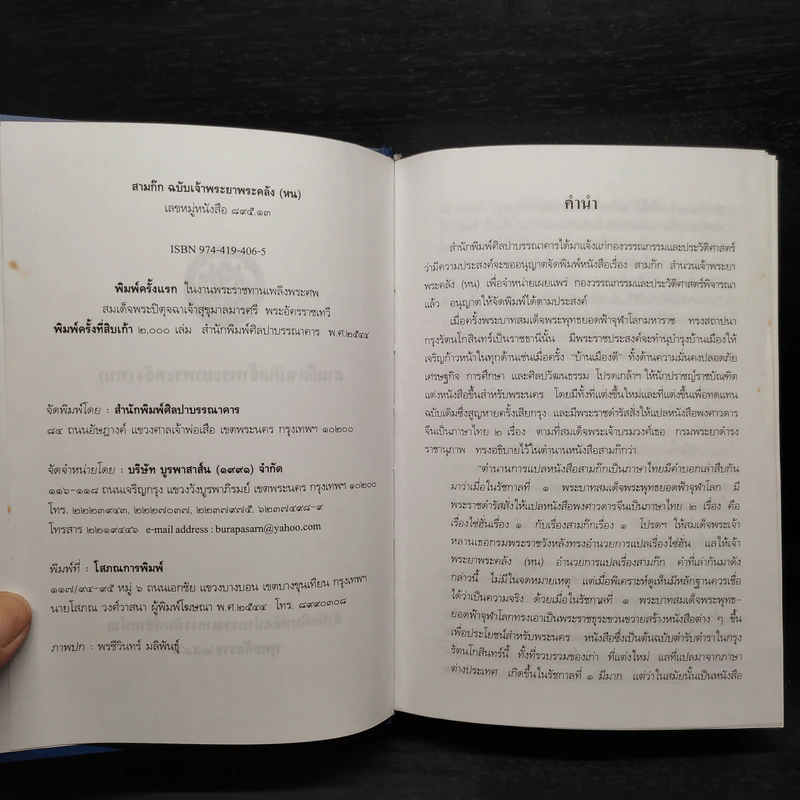 สามก๊ก ฉบับเจ้าพระยาพระคลัง (หน)
เลขหมู่หนังสือ ๘๙๕.๑๓
ISBN 974-419-406-5
พิมพ์ครั้งแรก ในงานพระราชทานเพลิงพระศพ
สมเด็จพระปิตุจฉาเจ้าสุขุมาลมารศรี พระอัครราชเทวี
พิมพ์ครั้งที่สิบเก้า ๒,๐๐๐ เล่ม สำนักพิมพ์ศิลปาบรรณาคาร พ.ศ.๒๕๔๔
จัดพิมพ์โดย : สำนักพิมพ์ศิลปาบรรณาคาร
๘๔ ถนนอัษฎางค์ แขวงศาลเจ้าพ่อเสือ เขตพระนคร กรุงเทพฯ ๑๐๒๐๐
จัดจำหน่ายโดย : บริษัท บูรพาสาส์น (๑๙๙๑) จำกัด
๑๑๖-๑๑๘ ถนนเจริญกรุง แขวงวังบูรพาภิรมย์ เขตพระนคร กรุงเทพฯ ๑๐๒๐๐
โทร. ๒๒๒๓๙๔๓, ๒๒๒๗๐๓๗, ๒๒๓๗๙๗๕, ๖๒๓๗๔๙๘-๙
โทรสาร ๒๒๑๙๔๔๖ e-mail address : burapasarn@yahoo.com
พิมพ์ที่ : โสภณการพิมพ์
๑๑๗/๙๔-๙๕ หมู่ ๖ ถนนเอกชัย แขวงบางบอน เขตบางขุนเทียน กรุงเทพฯ
นายโสภณ วงศ์วาสนา ผู้พิมพ์โฆษณา พ.ศ.๒๕๔๔ โทร. ๘๙๙๐๓๐๘
ภาพปก : พรชีวินทร์ มลิพันธุ์
คำนำ
สำนักพิมพ์ศิลปาบรรณาคารได้มาแจ้งแก่กองวรรณกรรมและประวัติศาสตร์
ว่ามีความประสงค์จะขออนุญาตจัดพิมพ์หนังสือเรื่อง สามก๊ก สำนวนเจ้าพระยา
พระคลัง (หน) เพื่อจำหน่ายเผยแพร่ กองวรรณกรรมและประวัติศาสตร์พิจารณา
แล้ว อนุญาตให้จัดพิมพ์ได้ตามประสงค์
เมื่อครั้งพระบาทสมเด็จพระพุทธยอดฟ้าจุฬาโลกมหาราช ทรงสถาปนา
กรุงรัตนโกสินทร์เป็นราชธานีนั้น มีพระราชประสงค์จะทำนุบำรุงบ้านเมืองให้
เจริญก้าวหน้าในทุกด้านเช่นเมื่อครั้ง "บ้านเมืองดี" ทั้งด้านความมั่นคงปลอดภัย
เศรษฐกิจ การศึกษา และศิลปวัฒนธรรม โปรดเกล้าฯ ให้นักปราชญ์ราชบัณฑิต
แต่งหนังสือขึ้นสำหรับพระนคร โดยมีทั้งที่แต่งขึ้นใหม่และที่แต่งขึ้นเพื่อทดแทน
ฉบับเดิมซึ่งสูญหายครั้งเสียกรุง และมีพระราชดำรัสสั่งให้แปลหนังสือพงศาวดาร
จีนเป็นภาษาไทย ๒ เรื่อง ตามที่สมเด็จพระเจ้าบรมวงศ์เธอ กรมพระยาดำรง
ราชานุภาพ ทรงอธิบายไว้ในตำนานหนังสือสามก๊กว่า
"ตำนานการแปลหนังสือสามก๊กเป็นภาษาไทยมีคำบอกเล่าสืบกัน
มาว่าเมื่อในรัชกาลที่ ๑ พระบาทสมเด็จพระพุทธยอดฟ้าจุฬาโลก มี
พระราชดำรัสสั่งให้แปลหนังสือพงศาวดารจีนเป็นภาษาไทย ๒ เรื่อง คือ
เรื่องไซ่ฮั่นเรื่อง ๑ กับเรื่องสามก๊กเรื่อง ๑ โปรดฯ ให้สมเด็จพระเจ้า
หลานเธอกรมพระราชวังหลังทรงอำนวยการแปลเรื่องไซ่ฮั่น แลให้เจ้า
พระยาพระคลัง (หน) อำนวยการแปลเรื่องสามก๊ก คำที่เล่ากันมาดัง
กล่าวนี้ ไม่มีในจดหมายเหตุ แต่เมื่อพิเคราะห์ดูเห็นมีหลักฐานควรเชื่อ
ได้ว่าเป็นความจริง ด้วยเมื่อในรัชกาลที่ ๑ พระบาทสมเด็จพระพุทธ-
ยอดฟ้าจุฬาโลกทรงเอาเป็นพระราชธุระขวนขวายสร้างหนังสือต่าง ๆ ขึ้น
เพื่อประโยชน์สำหรับพระนคร หนังสือซึ่งเป็นต้นฉบับตำรับตำราในกรุง
รัตนโกสินทร์นี้ ทั้งที่รวบรวมของเก่า ที่แต่งใหม่ แลที่แปลมาจากภาษา
ต่างประเทศ เกิดขึ้นในรัชกาลที่ ๑ มีมาก แต่ว่าในสมัยนั้นเป็นหนังสือ